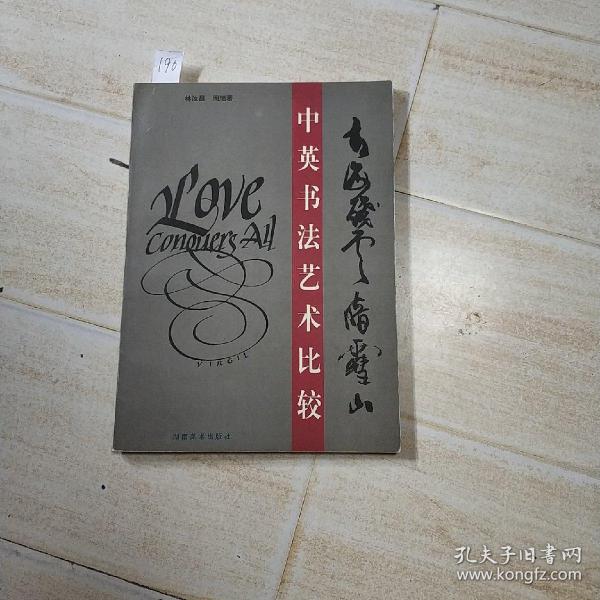 190
中英书法艺术比较
青海
长云暗雪山
Love
Conquers All
VIRGIL
湖南美术出版社
孔夫子旧书网
www.kongfz.com